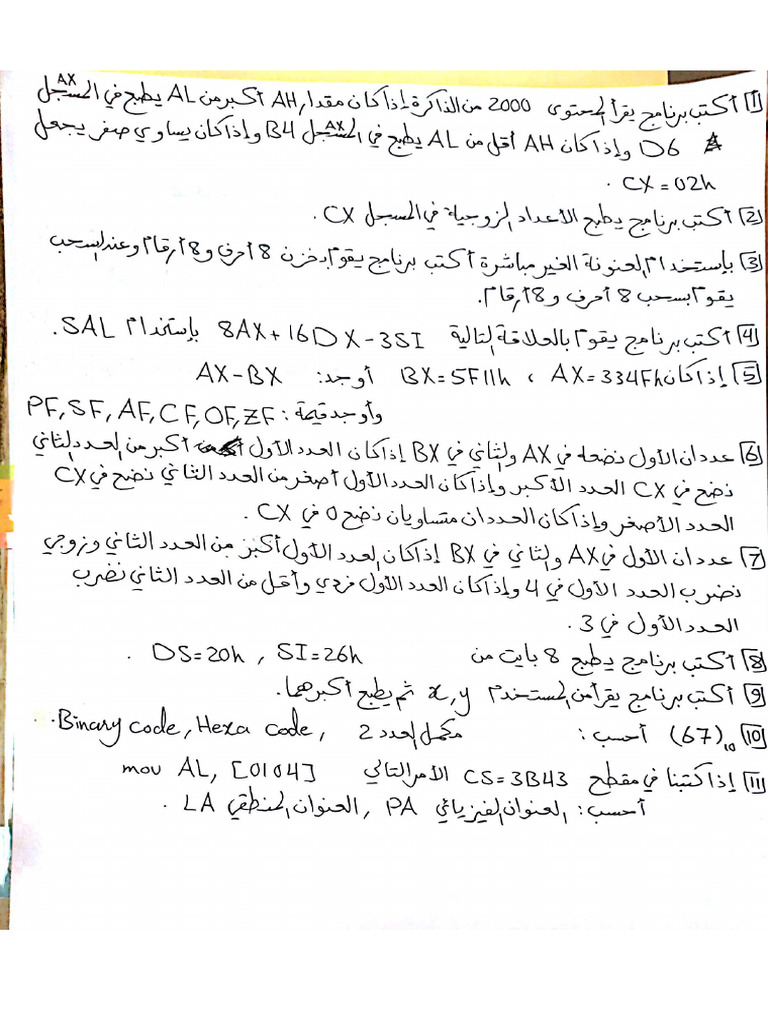 1 أكتب برنامج يقرأ المحتوى 2000 من الذاكرة إذا كان مقدار AH أكبر من AL يطبع في المسجل AX
D6 وإذا كان AH أقل من AL يطبع في المسجل AX B4 وإذا كان يساوي صفر يجعل
CX = 02h .
2 أكتب برنامج يطبع الأعداد الزوجية في المسجل CX .
3 بإستخدام العنونة الغير مباشرة أكتب برنامج يقوم بخزن 8 أحرف و 8 أرقام وعند السحب
يقوم بسحب 8 أحرف و 8 أرقام.
4 أكتب برنامج يقوم بالعلاقة التالية 8AX + 16DX - 3SI بإستخدام SAL .
5 إذا كان AX = 334Fh ، BX = 5F11h أوجد : AX - BX
وأوجد قيمة : PF, SF, AF, CF, OF, ZF
6 عددان الأول نضعه في AX والثاني في BX إذا كان العدد الأول أكبر من العدد الثاني
نضع في CX العدد الأكبر وإذا كان العدد الأول أصغر من العدد الثاني نضع في CX
العدد الأصغر وإذا كان العددان متساويان نضع 0 في CX .
7 عددان الأول في AX والثاني في BX إذا كان العدد الأول أكبر من العدد الثاني وزوجي
نضرب العدد الأول في 4 وإذا كان العدد الأول فردي وأقل من العدد الثاني نضرب
العدد الأول في 3 .
8 أكتب برنامج يطبع 8 بايت من DS = 20h , SI = 26h .
9 أكتب برنامج يقرأ من المستخدم x, y ثم يطبع أكبرهما .
10 (67)10 أحسب : مكمل العدد 2 , Binary code, Hexa code
11 إذا كتبنا في مقطع CS = 3B43 الأمر التالي mov AL, [0104]
أحسب : العنوان الفيزيائي PA , العنوان المنطقي LA .